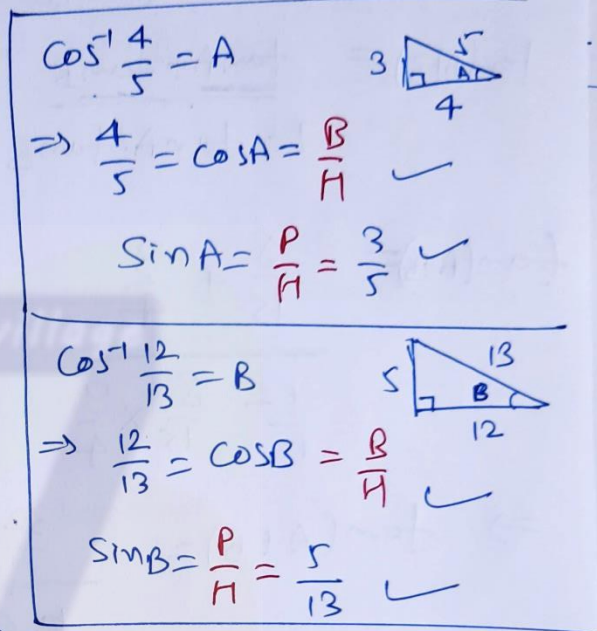 cos⁻¹ 4/5 = A
3 5 A 4
⇒ 4/5 = cosA = B/H ✓
SinA = P/H = 3/5 ✓
cos⁻¹ 12/13 = B
5 13 B 12
⇒ 12/13 = cosB = B/H ✓
SinB = P/H = 5/13 ✓